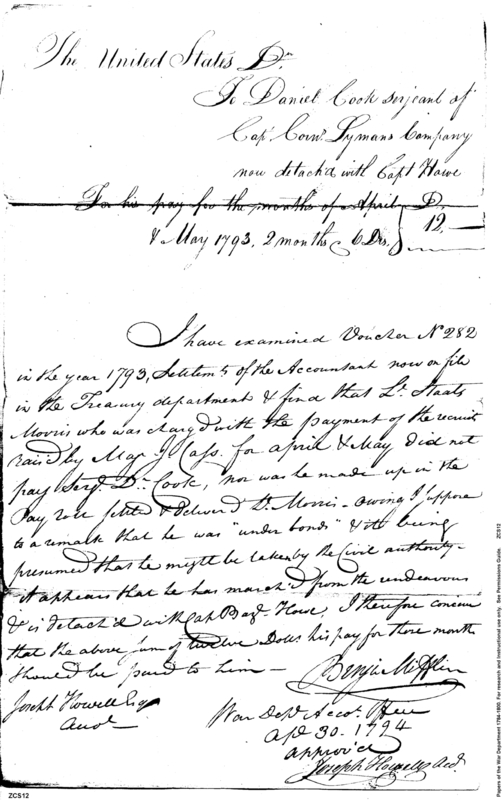 The United States Dr
To Daniel Cook serjeant of
Capt Corns Lymans Company
now detach'd with Capt Howe
For his pay for the months of April D.
& May 1793, 2 months @ 6 Drs. } 12.
I have examined Voucher No 282
in the year 1793, Settlemts of the Accountant now on file
in the Treasury department & find that Lt. Staats
Morris who was charg'd with the payment of the recruits
rais'd by Maj. J Cass. for april & May did not
pay Serjt. Dl. Cook, nor was he made up in the
Pay roll settled & deliverd Lt. Morris - owing I suppose
to a remark that he was "under bonds" & it being
presumed that he might be taken by the Civil authority -
it appears that he has march'd from the rendezvous
& is detach'd with Capt Bazl. Howe, I therefore conceive
that the above sum of twelve Dolls his pay for those months
should be paid to him -
Benja Mifflin
Joseph Howell Esqr
Acct.
War Dept. Accts. Office
Apl. 30. 1794
approv'd
Joseph Howell Acct.
ZCS12
Papers of the War Department 1784-1800. For research and instructional use only. See Permissions Guide. ZCS12